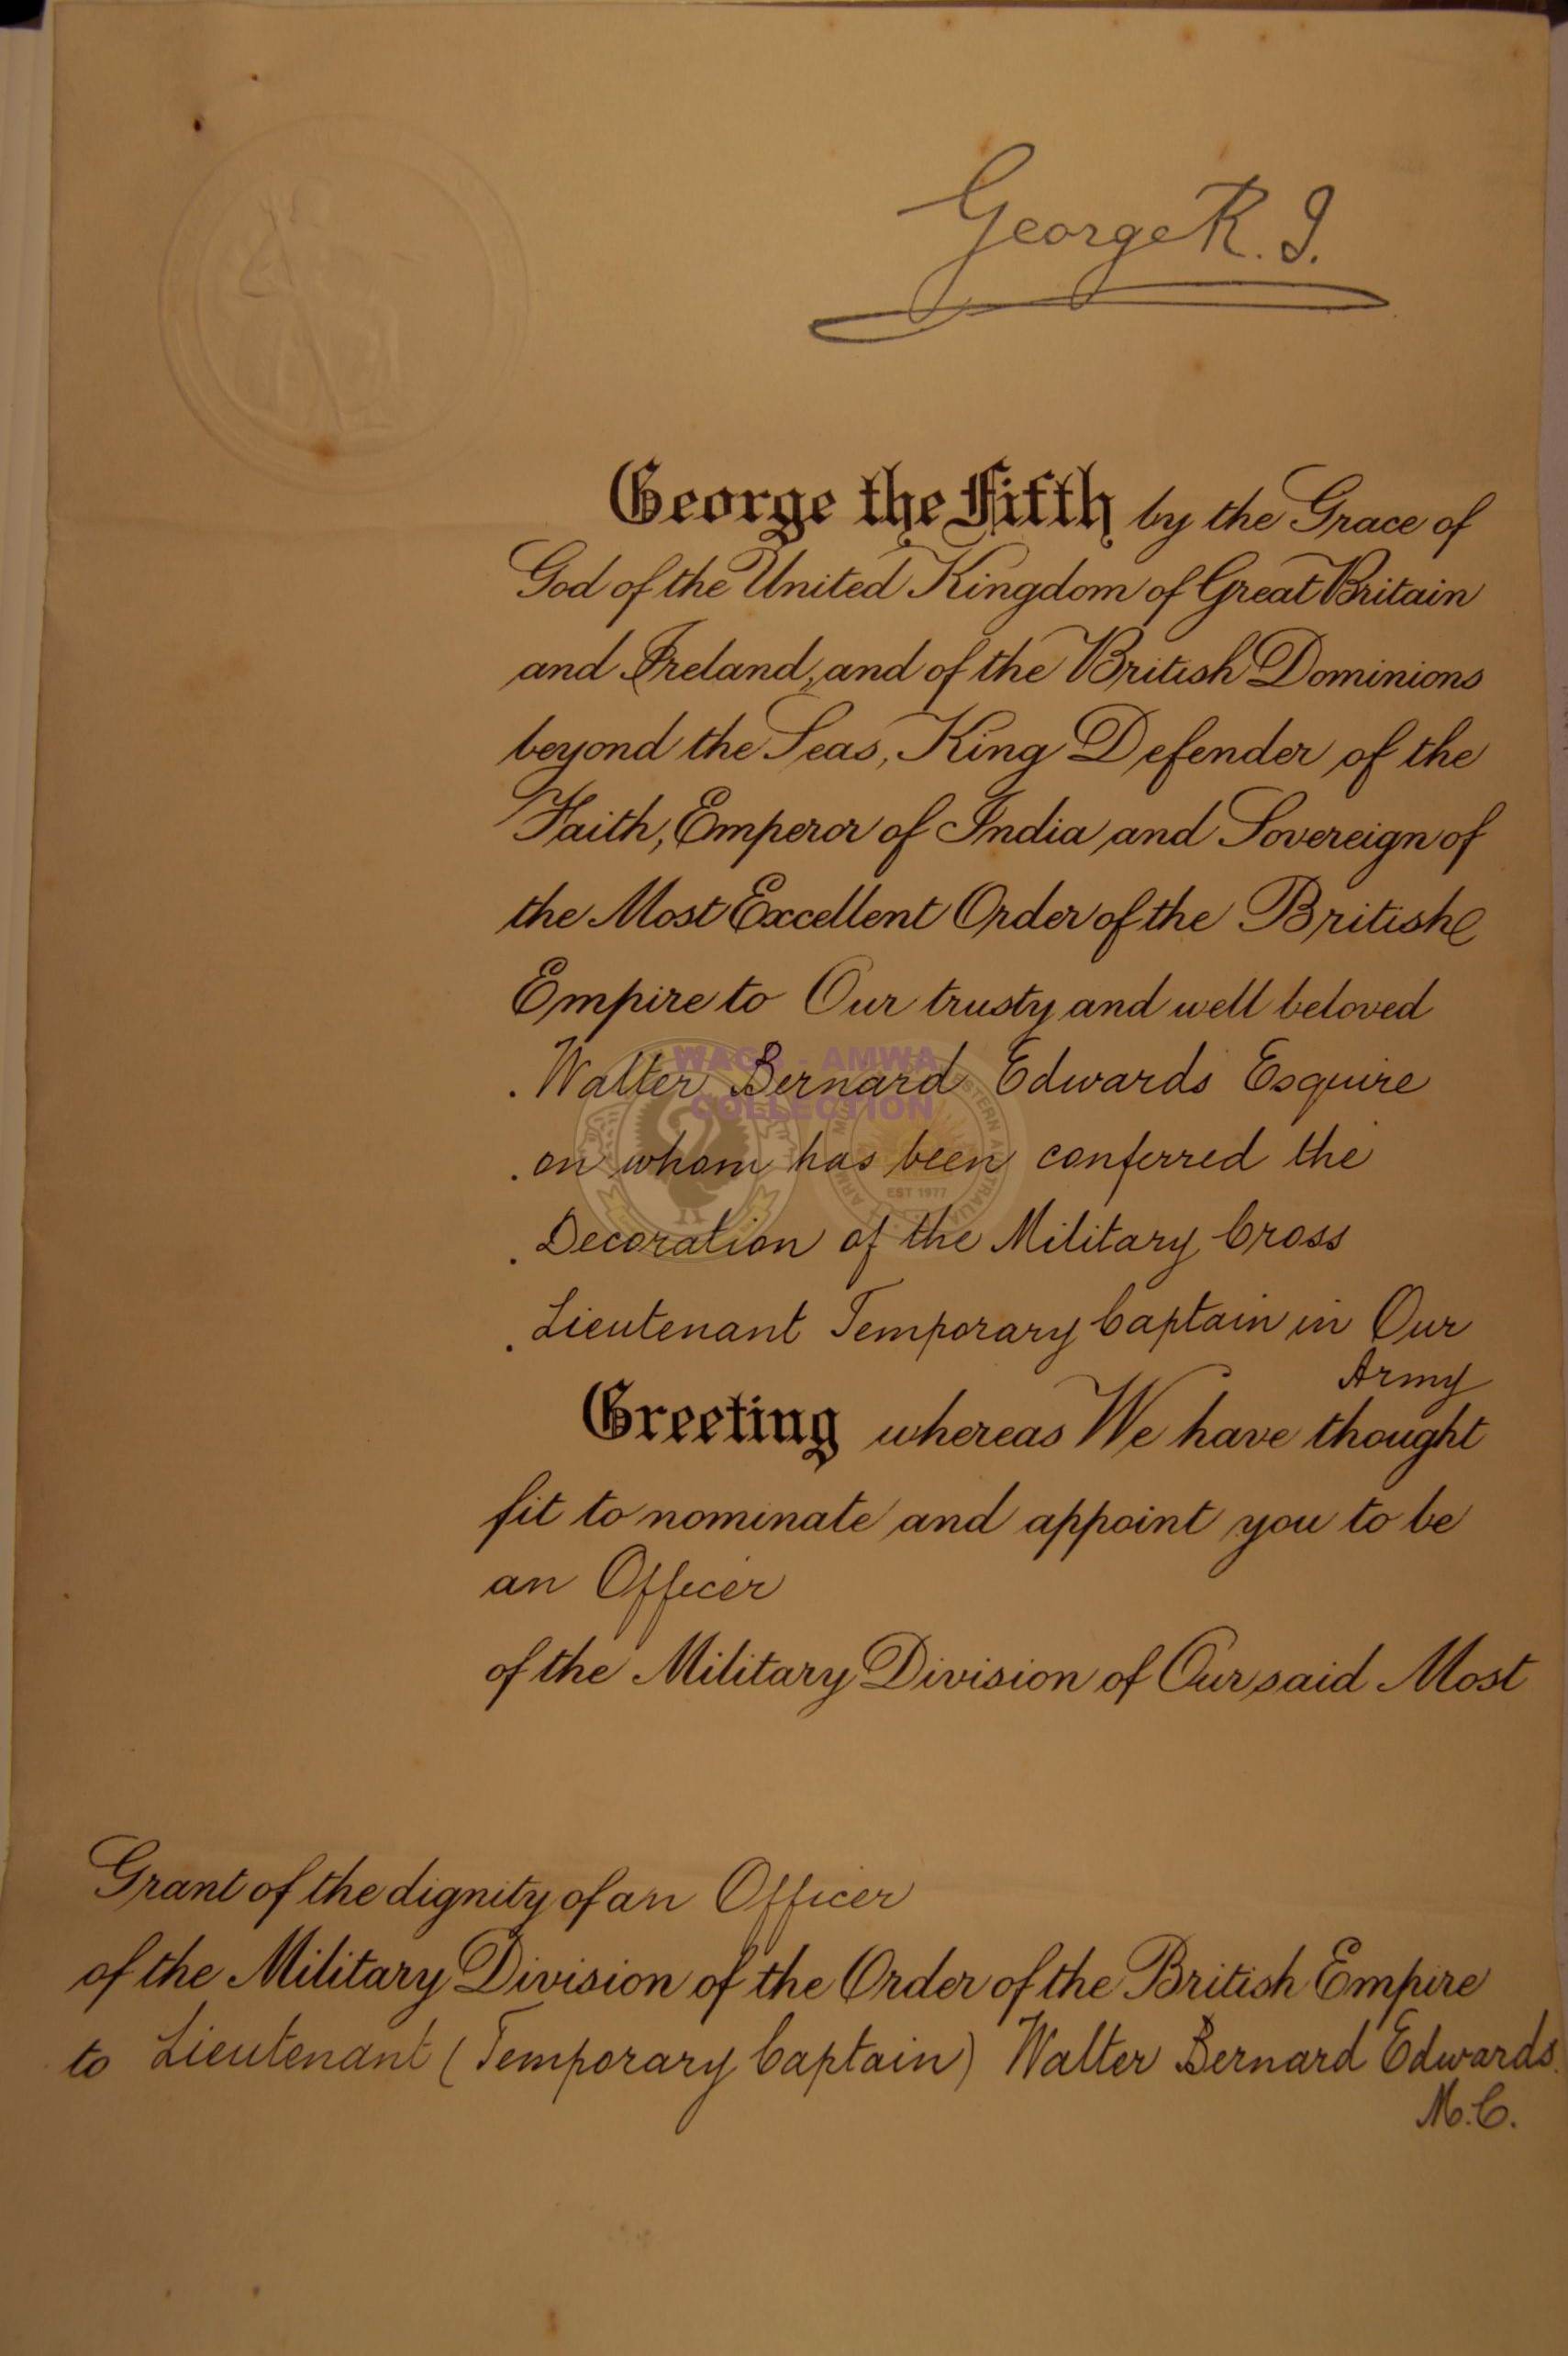 George R. I.
George the Fifth by the Grace of
God of the United Kingdom of Great Britain
and Ireland, and of the British Dominions
beyond the Seas, King Defender of the
Faith, Emperor of India and Sovereign of
the Most Excellent Order of the British
Empire to Our trusty and well beloved
. Walter Bernard Edwards Esquire
. on whom has been conferred the
. Decoration of the Military Cross
. Lieutenant Temporary Captain in Our
Army
Greeting whereas We have thought
fit to nominate and appoint you to be
an Officer
of the Military Division of Our said Most
Grant of the dignity of an Officer
of the Military Division of the Order of the British Empire
to Lieutenant (Temporary Captain) Walter Bernard Edwards.
M.C.
AMWA
COLLECTION
EST 1977